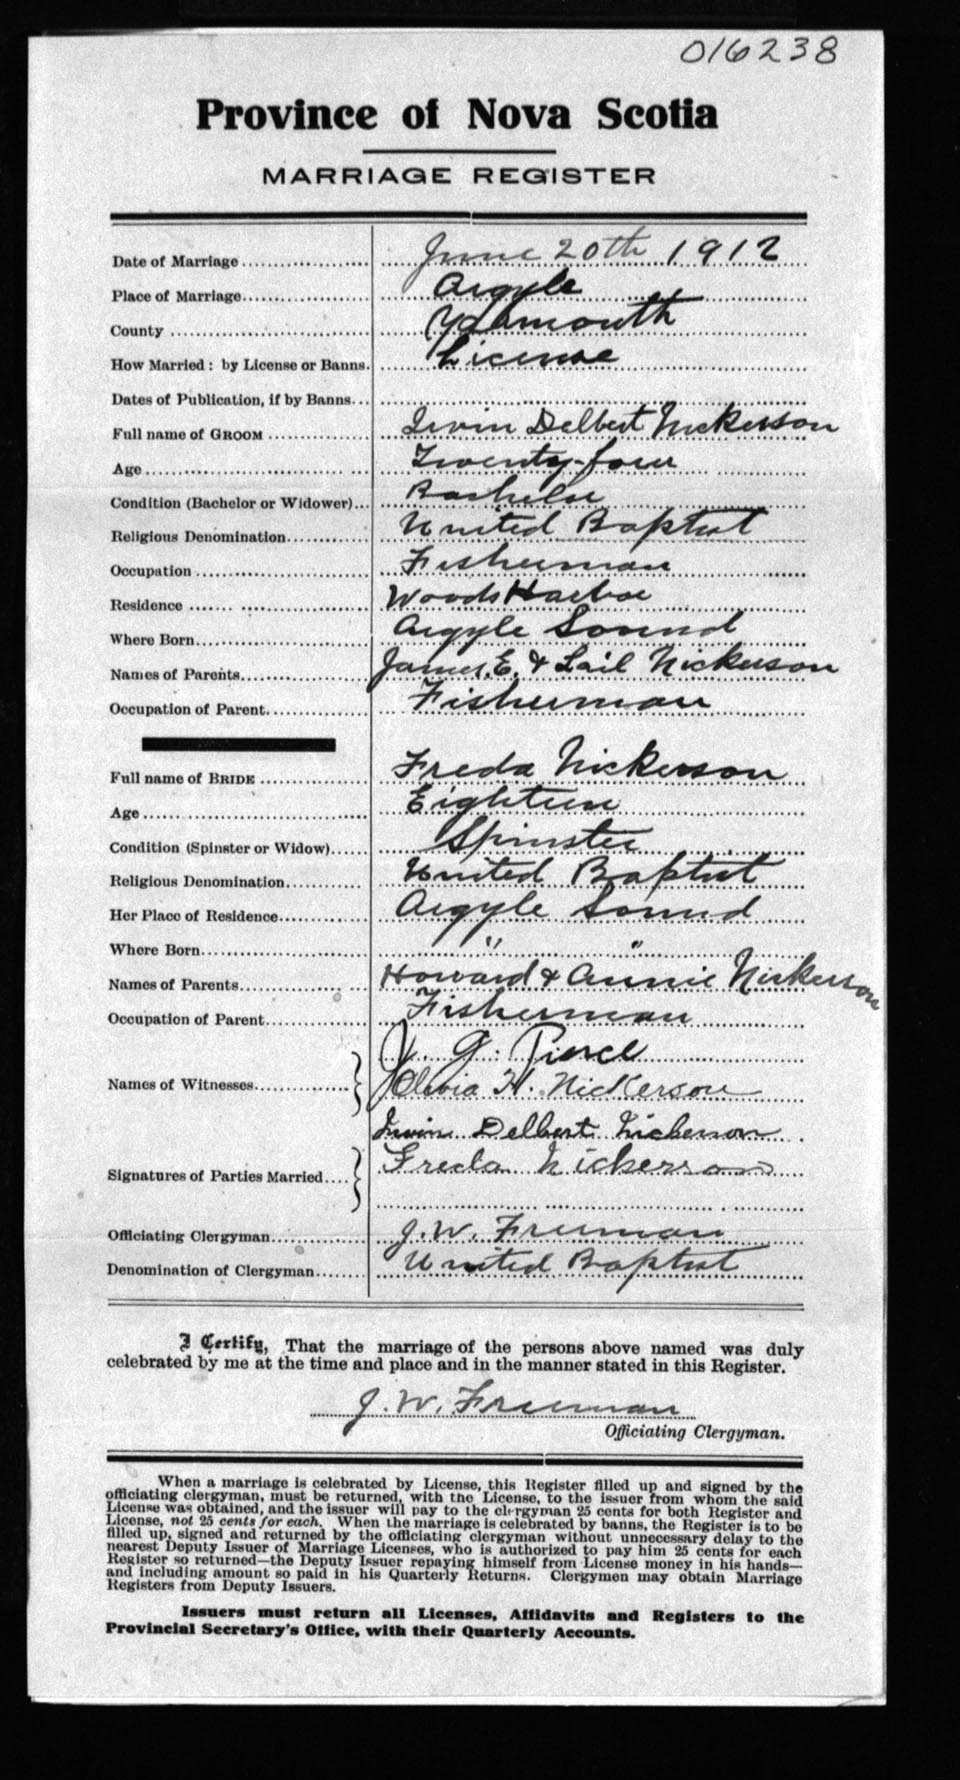 016238
Province of Nova Scotia
MARRIAGE REGISTER
Date of Marriage June 20th 1912
Place of Marriage Argyle
County Yarmouth
How Married: by License or Banns. License
Dates of Publication, if by Banns
Full name of GROOM Irvin Delbert Nickerson
Age Twenty-four
Condition (Bachelor or Widower) Bachelor
Religious Denomination United Baptist
Occupation Fisherman
Residence Woods Harbor
Where Born Argyle Sound
Names of Parents James E. & Lail Nickerson
Occupation of Parent Fisherman
Full name of BRIDE Freda Nickerson
Age Eighteen
Condition (Spinster or Widow) Spinster
Religious Denomination United Baptist
Her Place of Residence Argyle Sound
Where Born " "
Names of Parents Howard & Annie Nickerson
Occupation of Parent Fisherman
J. G. Pierce
Names of Witnesses Olivia H. Nickerson
Irvin Delbert Nickerson
Signatures of Parties Married Freda Nickerson
Officiating Clergyman J. W. Freeman
Denomination of Clergyman United Baptist
I Certify, That the marriage of the persons above named was duly
celebrated by me at the time and place and in the manner stated in this Register.
J. W. Freeman
Officiating Clergyman.
When a marriage is celebrated by License, this Register filled up and signed by the
officiating clergyman, must be returned, with the License, to the issuer from whom the said
License was obtained, and the issuer will pay to the clergyman 25 cents for both Register and
License, not 25 cents for each. When the marriage is celebrated by banns, the Register is to be
filled up, signed and returned by the officiating clergyman without unnecessary delay to the
nearest Deputy Issuer of Marriage Licenses, who is authorized to pay him 25 cents for each
Register so returned—the Deputy Issuer repaying himself from License money in his hands—
and including amount so paid in his Quarterly Returns. Clergymen may obtain Marriage
Registers from Deputy Issuers.
Issuers must return all Licenses, Affidavits and Registers to the
Provincial Secretary's Office, with their Quarterly Accounts.